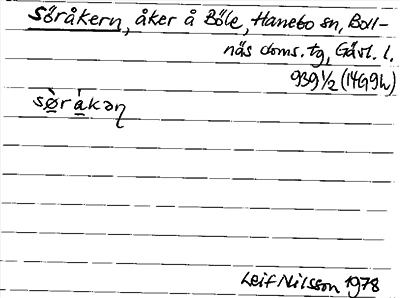 Söråkern, åker å Böle, Hanebo sn, Boll-
näs doms. tg, Gävl. l.
939½ (14G9h)
sø̀råkəɳ
Leif Nilsson 1978